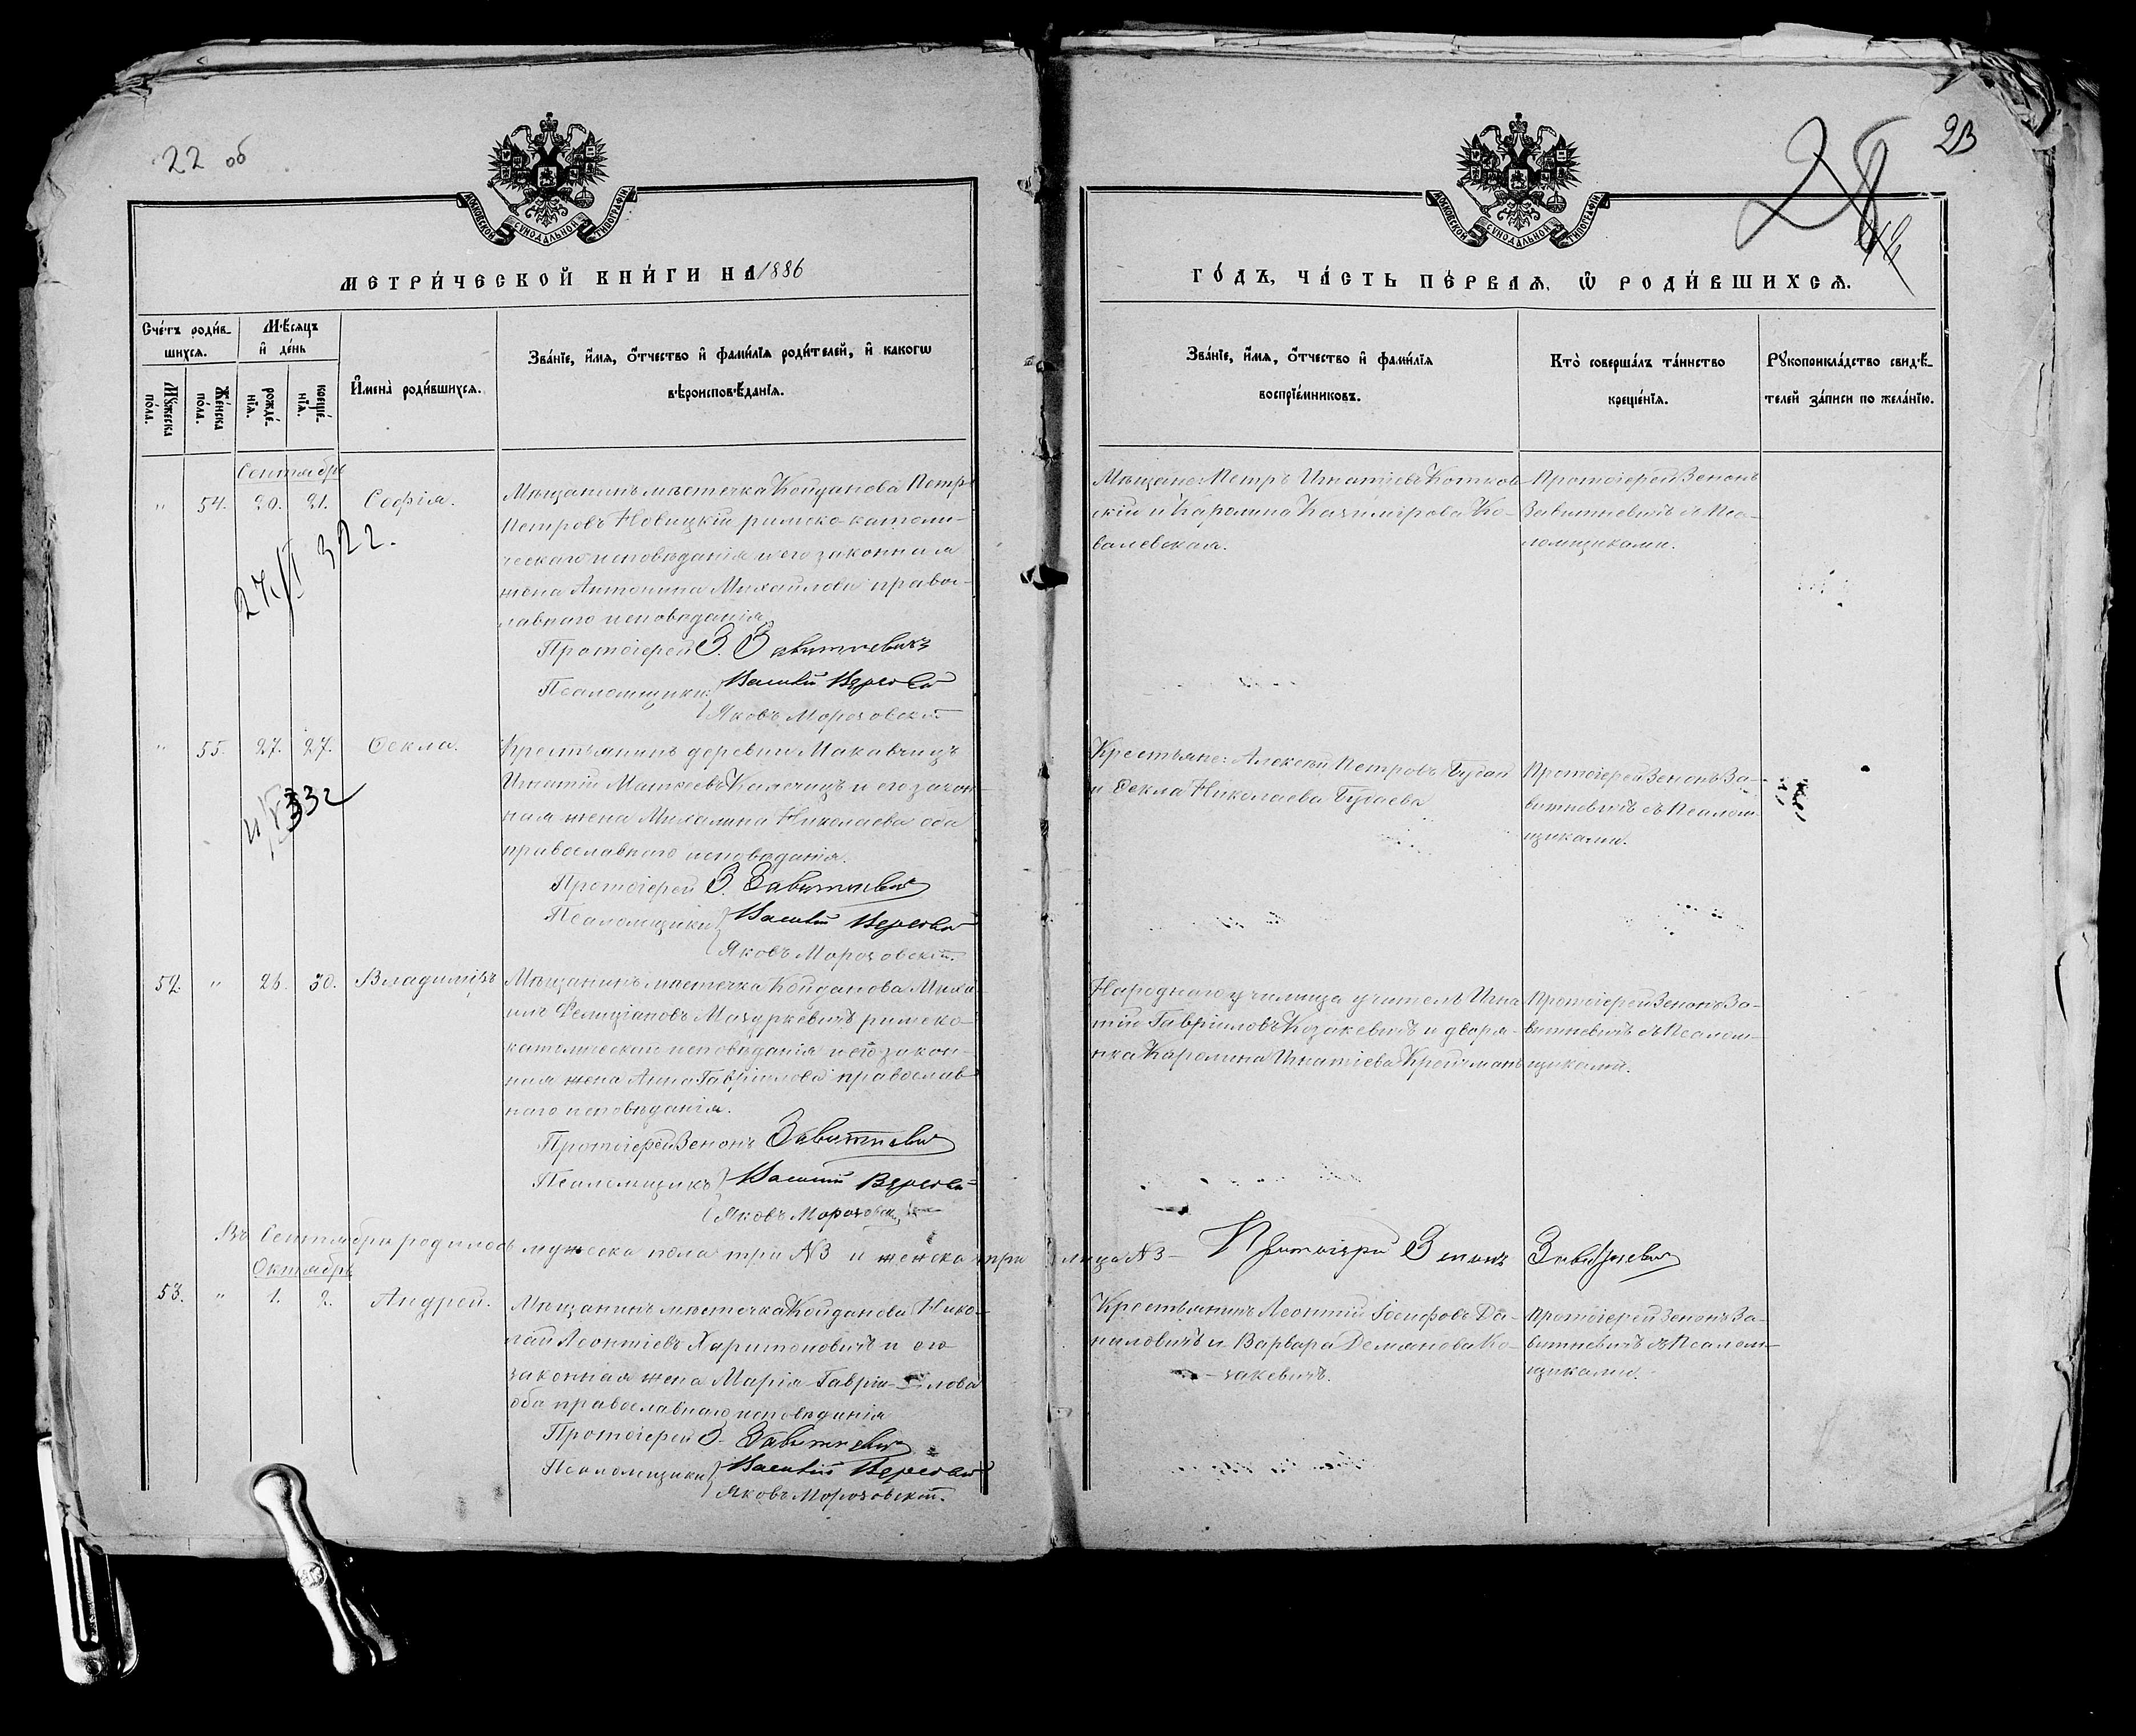 22 об
МОСКОВСКОЙ СѴНОДАЛЬНОЙ ТИПОГРАФІИ
МЕТРИ́ЧЕСКОЙ КНИ́ГИ НА 1886
Сче́тъ роди́в-
шихсѧ.
Мѹ́жеска по́ла.
Же́нска по́ла.
Мѣ́сѧцъ
и҆ де́нь
рожде́-
нїѧ.
креще́-
нїѧ.
И҆мена̀ роди́вшихсѧ.
Зва́нїе, и҆́мѧ, ѻ҆́тчество и҆ фами́лїѧ роди́телей, и҆ како́гѡ
вѣроисповѣ́данїѧ.
Сентябрь
" 54. 20. 21. Софія.
Мѣщанинъ мѣстечка Койданова Петръ
Петровъ Новицкій римско-католи-
ческаго исповѣданія и его законная
жена Антонина Михайлова правос-
лавнаго исповѣданія.
Протоіерей З. Завитневичъ
Псаломщики: Василій
Яковъ Морозовскій
322.
" 55. 27. 27. Ѳекла.
Крестьянинъ деревни Макавчицъ
Игнатій Матѳеевъ и его закон-
ная жена Михалина Николаева оба
православнаго исповѣданія.
Протоіерей З. Завитневичъ
Псаломщики Василій
Яковъ Морозовскій.
332
52. " 26. 30. Владиміръ
Мѣщанинъ мѣстечка Койданова Миха-
илъ Фелиціановъ Мазуркевичъ римско-
католическаго исповѣданія и его закон-
ная жена Анна Гавріилова православ-
наго исповѣданія.
Протоіерей Зенонъ Завитневичъ
Псаломщики Василій
Яковъ Морозовскій
Въ Сентябрѣ родилось мужеска пола три №3 и женска три лица №3 - Протоіерей Зенонъ Завитневичъ
Октябрь
53. " 1. 2. Андрей.
Мѣщанинъ мѣстечка Койданова Нико-
лай Леонтіевъ Харитоновичъ и его
законная жена Марія Гавріилова
оба православнаго исповѣданія
Протоіерей З. Завитневичъ
Псаломщики Василій
Яковъ Морозовскій.
23
28
МОСКОВСКОЙ СѴНОДАЛЬНОЙ ТИПОГРАФІИ
ГО́ДЪ, ЧА́СТЬ ПЕ́РВАѦ, Ѡ҆ РОДИ́ВШИХСѦ.
Зва́нїе, и҆́мѧ, ѻ҆́тчество и҆ фами́лїѧ
воспрїе́мниковъ.
Кто̀ соверша́лъ та́инство
креще́нїѧ.
Рꙋкоприкла́дство свидѣ́-
телей за́писи по жела́нїю.
Мѣщане: Петръ Игнатіевъ Котков-
скій и Каролина Казимірова Ко-
валевская.
Протоіерей Зенонъ
Завитневичъ съ Пса-
ломщиками.
Крестьяне: Алексѣй Петровъ
и Ѳекла Николаева
Протоіерей Зенонъ За-
витневичъ съ Псалом-
щиками.
Народнаго училища учитель Игна-
тій Гавріиловъ Козакевичъ и дворян-
ка Каролина Игнатіева
Протоіерей Зенонъ За-
витневичъ съ Псалом-
щиками.
Крестьянинъ Леонтій Іосифовъ Да-
ниловичъ и Варвара Демянова Ко-
закевичъ.
Протоіерей Зенонъ За-
витневичъ съ Псалом-
щиками.